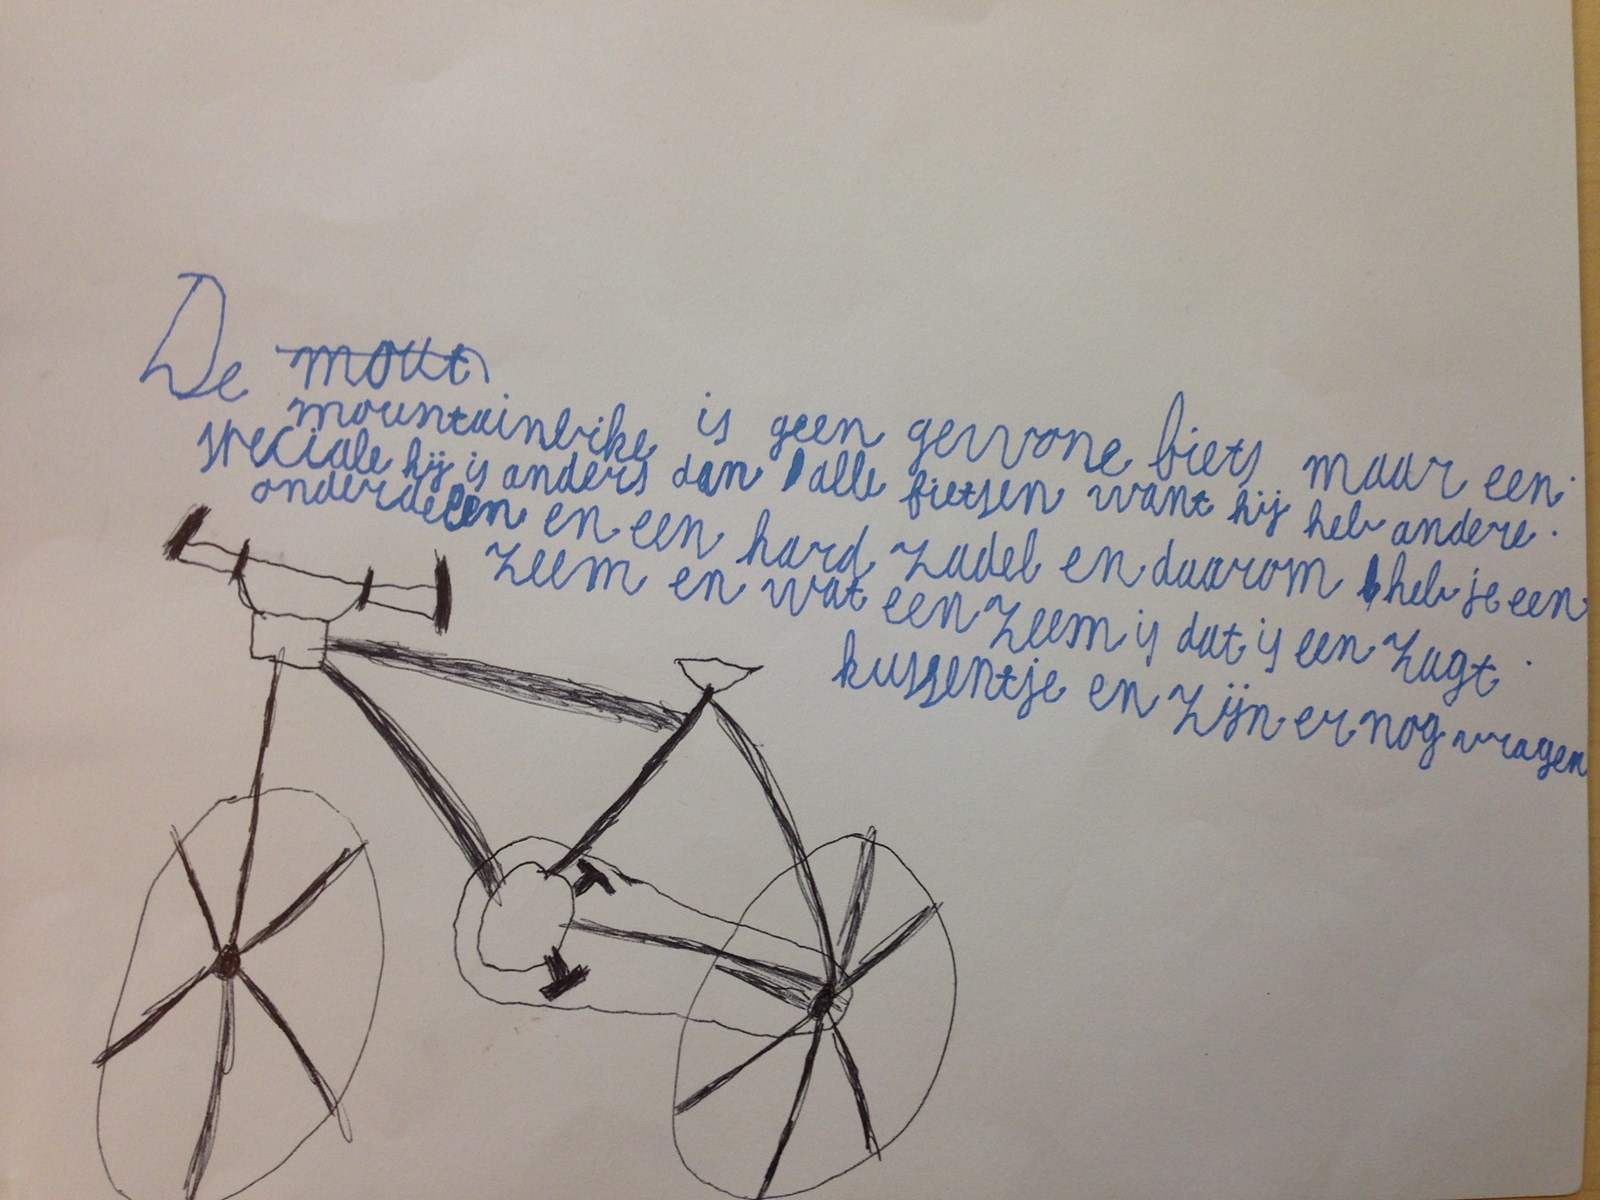 De moutt
mountainbike is geen gewone fiets maar een
speciale hij is anders dan alle fietsen want hij heb andere.
onderdeelen en een hard zadel en daarom heb je een
zeem en wat een zeem is dat is een zagt.
kussentje en zijn er nog vragen